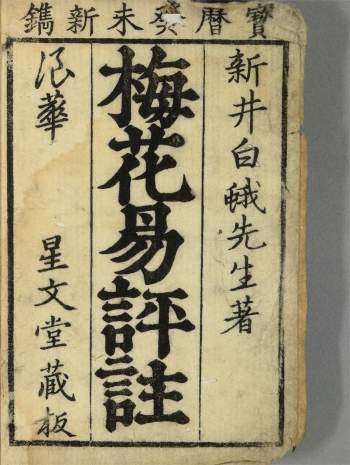 寳暦癸未新鐫
新井白蛾先生著
梅花易評註
浪華　星文堂藏板